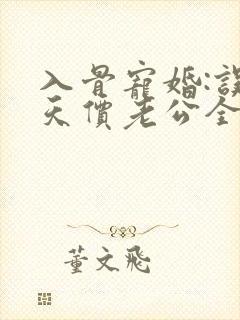 入骨寵婚:誤
天價老公全
董文飛